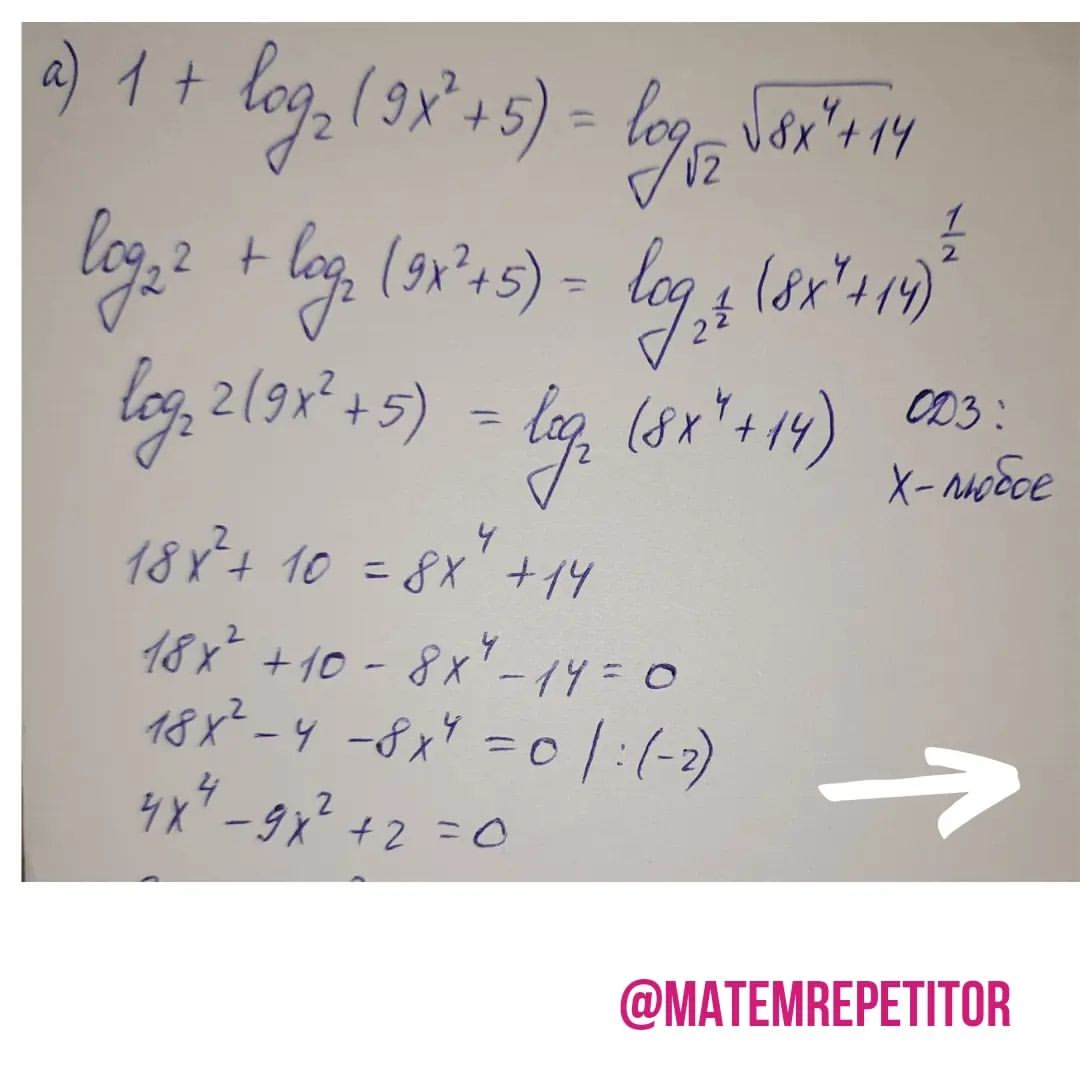 а) 1 + log₂ (9x² + 5) = log_√2 √(8x⁴ + 14)
log₂ 2 + log₂ (9x² + 5) = log_2^(1/2) (8x⁴ + 14)^(1/2)
log₂ 2(9x² + 5) = log₂ (8x⁴ + 14)
ОДЗ:
x - любое
18x² + 10 = 8x⁴ + 14
18x² + 10 - 8x⁴ - 14 = 0
18x² - 4 - 8x⁴ = 0 | : (-2)
4x⁴ - 9x² + 2 = 0
@MATEMREPETITOR